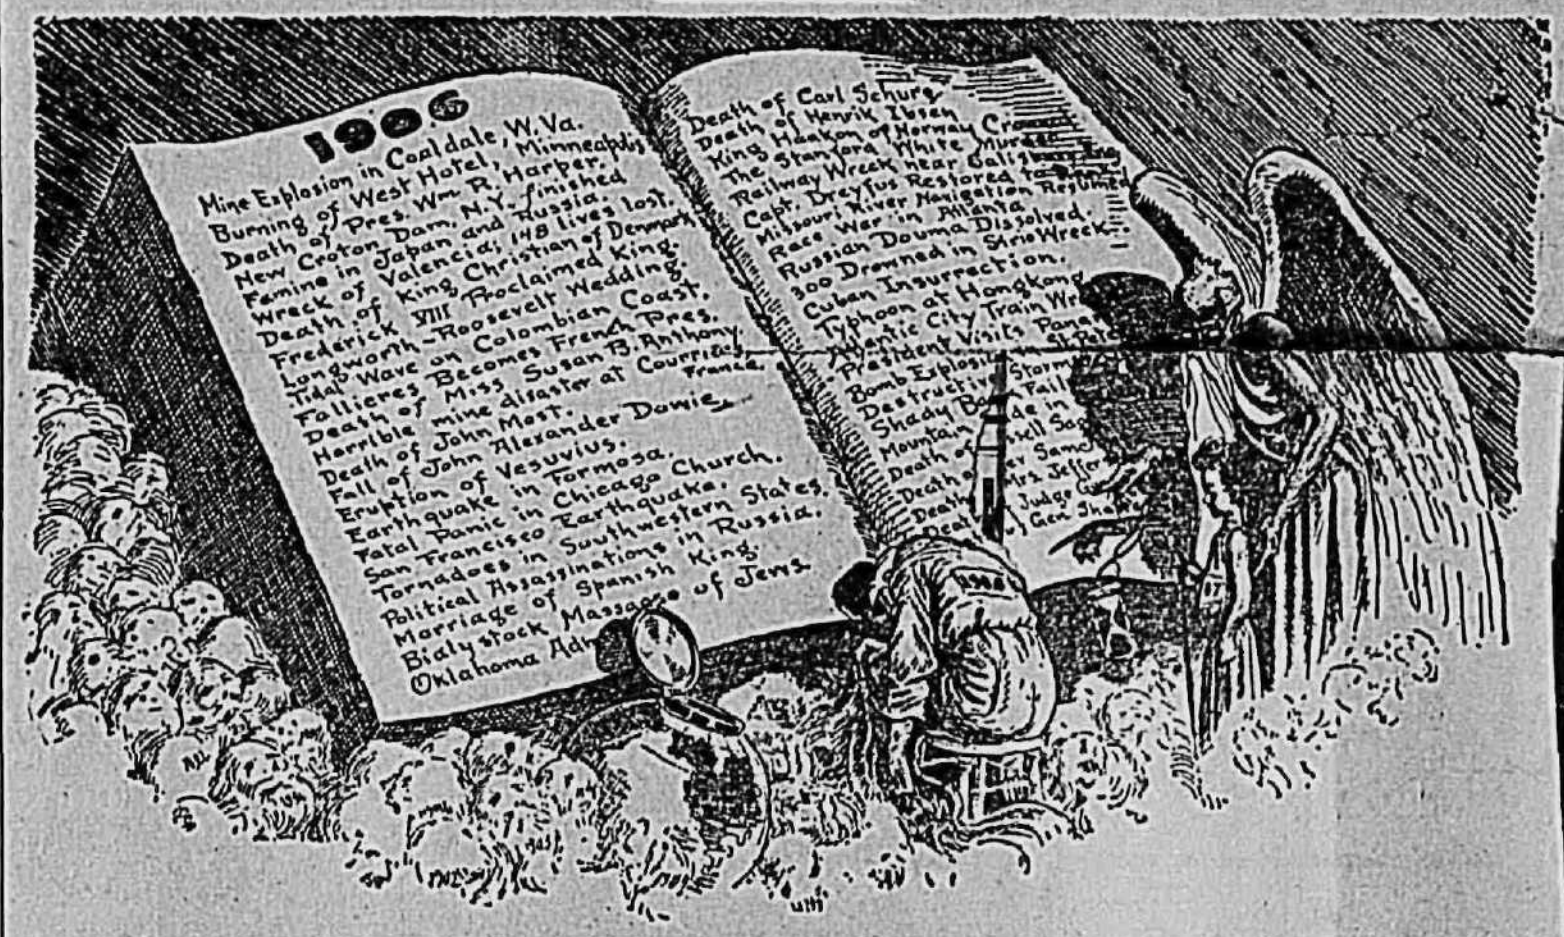 1906
Mine Explosion in Coaldale, W. Va.
Burning of West Hotel, Minneapolis
Death of Pres. Wm R. Harper.
New Croton Dam, N.Y. finished
Famine in Japan and Russia.
Wreck of Valencia; 148 lives lost.
Death of King Christian of Denmark
Frederick VIII Proclaimed King.
Longworth-Roosevelt Wedding.
Tidal Wave on Colombian Coast.
Fallieres Becomes French Pres.
Death of Miss Susan B. Anthony.
Horrible mine disaster at Courrieres,
France.
Death of John Most.
Fall of John Alexander Dowie
Eruption of Vesuvius.
Earthquake in Formosa.
Fatal Panic in Chicago Church.
San Francisco Earthquake.
Tornadoes in Southwestern States.
Political Assassinations in Russia.
Marriage of Spanish King.
Bialystock Massacre of Jews
Oklahoma Adm
Death of Carl Schurz
Death of Henrik Ibsen
King Haakon of Norway Crowned
The Stanford White Murder
Railway Wreck near Salisbury Eng
Capt. Dreyfus Restored to
Missouri River Navigation Resumed
Race War in Atlanta
Russian Douma Dissolved.
300 Drowned in Sirio Wreck.
Cuban Insurrection.
Typhoon at Hongkong
Atlantic City Train Wr
President Visits Pana
Bomb Explos St. Pet
Destructive Storm
Shady Ba Fail
Mountain de in
Death of ssell Sag
Death er Sam
Death Mrs. Jeffer
Deat Judge
Gen. Sha